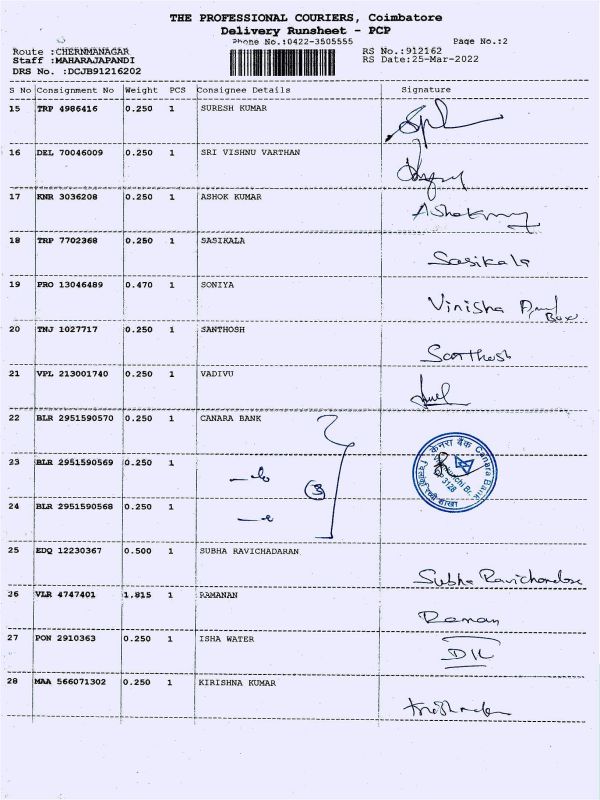 THE PROFESSIONAL COURIERS, Coimbatore
Delivery Runsheet - PCP
Phone No.:0422-3505555 Page No.:2
Route :CHERNMANAGAR RS No.:912162
Staff :MAHARAJAPANDI RS Date:25-Mar-2022
DRS No. :DCJB91216202
S No Consignment No Weight PCS Consignee Details Signature
15 TRP 4986416 0.250 1 SURESH KUMAR
16 DEL 70046009 0.250 1 SRI VISHNU VARTHAN
17 KNR 3036208 0.250 1 ASHOK KUMAR
18 TRP 7702368 0.250 1 SASIKALA Sasikala
19 PRO 13046489 0.470 1 SONIYA Vinisha
20 TNJ 1027717 0.250 1 SANTHOSH Santhosh
21 VPL 213001740 0.250 1 VADIVU
22 BLR 2951590570 0.250 1 CANARA BANK
केनरा बैंक Canara Bank
23 BLR 2951590569 0.250 1 3
3128
शाखा
24 BLR 2951590568 0.250 1
25 EDQ 12230367 0.500 1 SUBHA RAVICHADARAN
Subha
26 VLR 4747401 1.815 1 RAMANAN
Raman
27 PON 2910363 0.250 1 ISHA WATER
28 MAA 566071302 0.250 1 KIRISHNA KUMAR